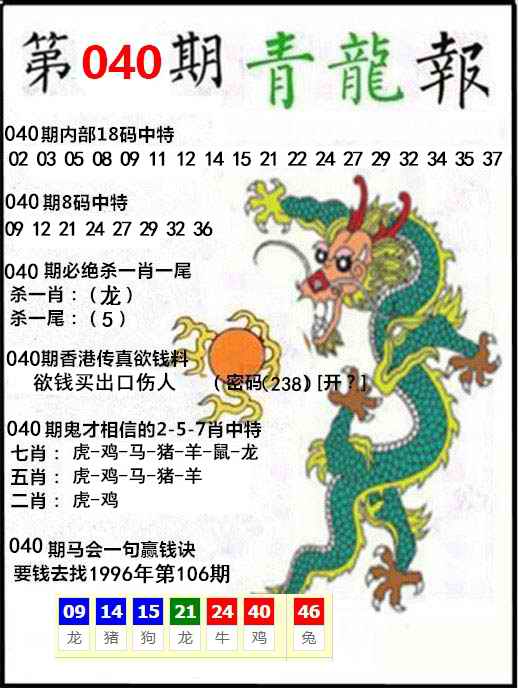 第040期青龍報
040期内部18码中特
02 03 05 08 09 11 12 14 15 21 22 24 27 29 32 34 35 37
040期8码中特
09 12 21 24 27 29 32 36
040 期必绝杀一肖一尾
杀一肖：（龙）
杀一尾：（5）
040期香港传真欲钱料
欲钱买出口伤人 （密码(238)[开？]
040期鬼才相信的2-5-7肖中特
七肖：虎-鸡-马-猪-羊-鼠-龙
五肖：虎-鸡-马-猪-羊
二肖：虎-鸡
040期马会一句赢钱诀
要钱去找1996年第106期
09 14 15 21 24 40 46
龙 猪 狗 龙 牛 鸡 兔